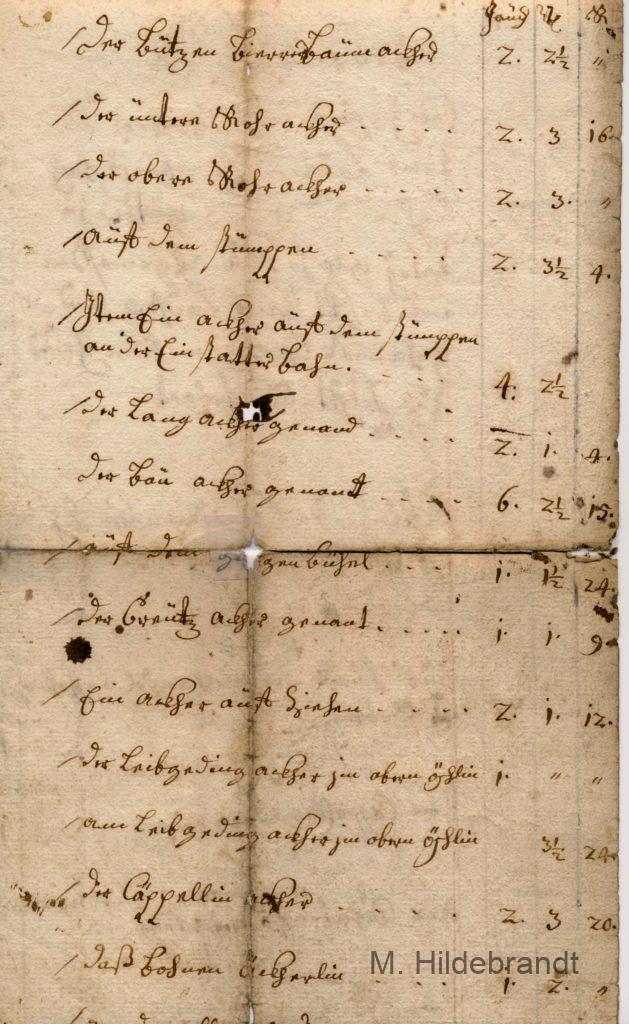 Jauch
/ Der Bützen Bierres Baum ackher 2. 2½ "
/ der üntere Rohr ackher . . . . 2. 3 16.
/ der obere Rohr ackher . . . . 2. 3. "
/ auff dem stümppen . . . . . 2. 3½ 4.
/ Item Ein ackher auff dem stümppen
an der Einstatter Bahn. . . . 4. 2½
/ der Lang ackher genand . . . . 2. 1. 4.
der Bau ackher genant . . . . 6. 2½ 15.
/ auff dem bühel . . . 1. 1½ 24.
/ der Creütz ackher genant . . . . . 1. 1. 9.
/ Ein ackher auff Ziehen . . . . . 2. 1. 12.
/ der Leibgeding ackher jm obern öschlin 1. " "
/ am Leibgeding ackher jm obern öschlin 3½ 24.
/ der Cäppellin ackher . . . . . 2. 3 20.
/ daß Bohnen äckherlin . . . . 1. 2. "
M. Hildebrandt